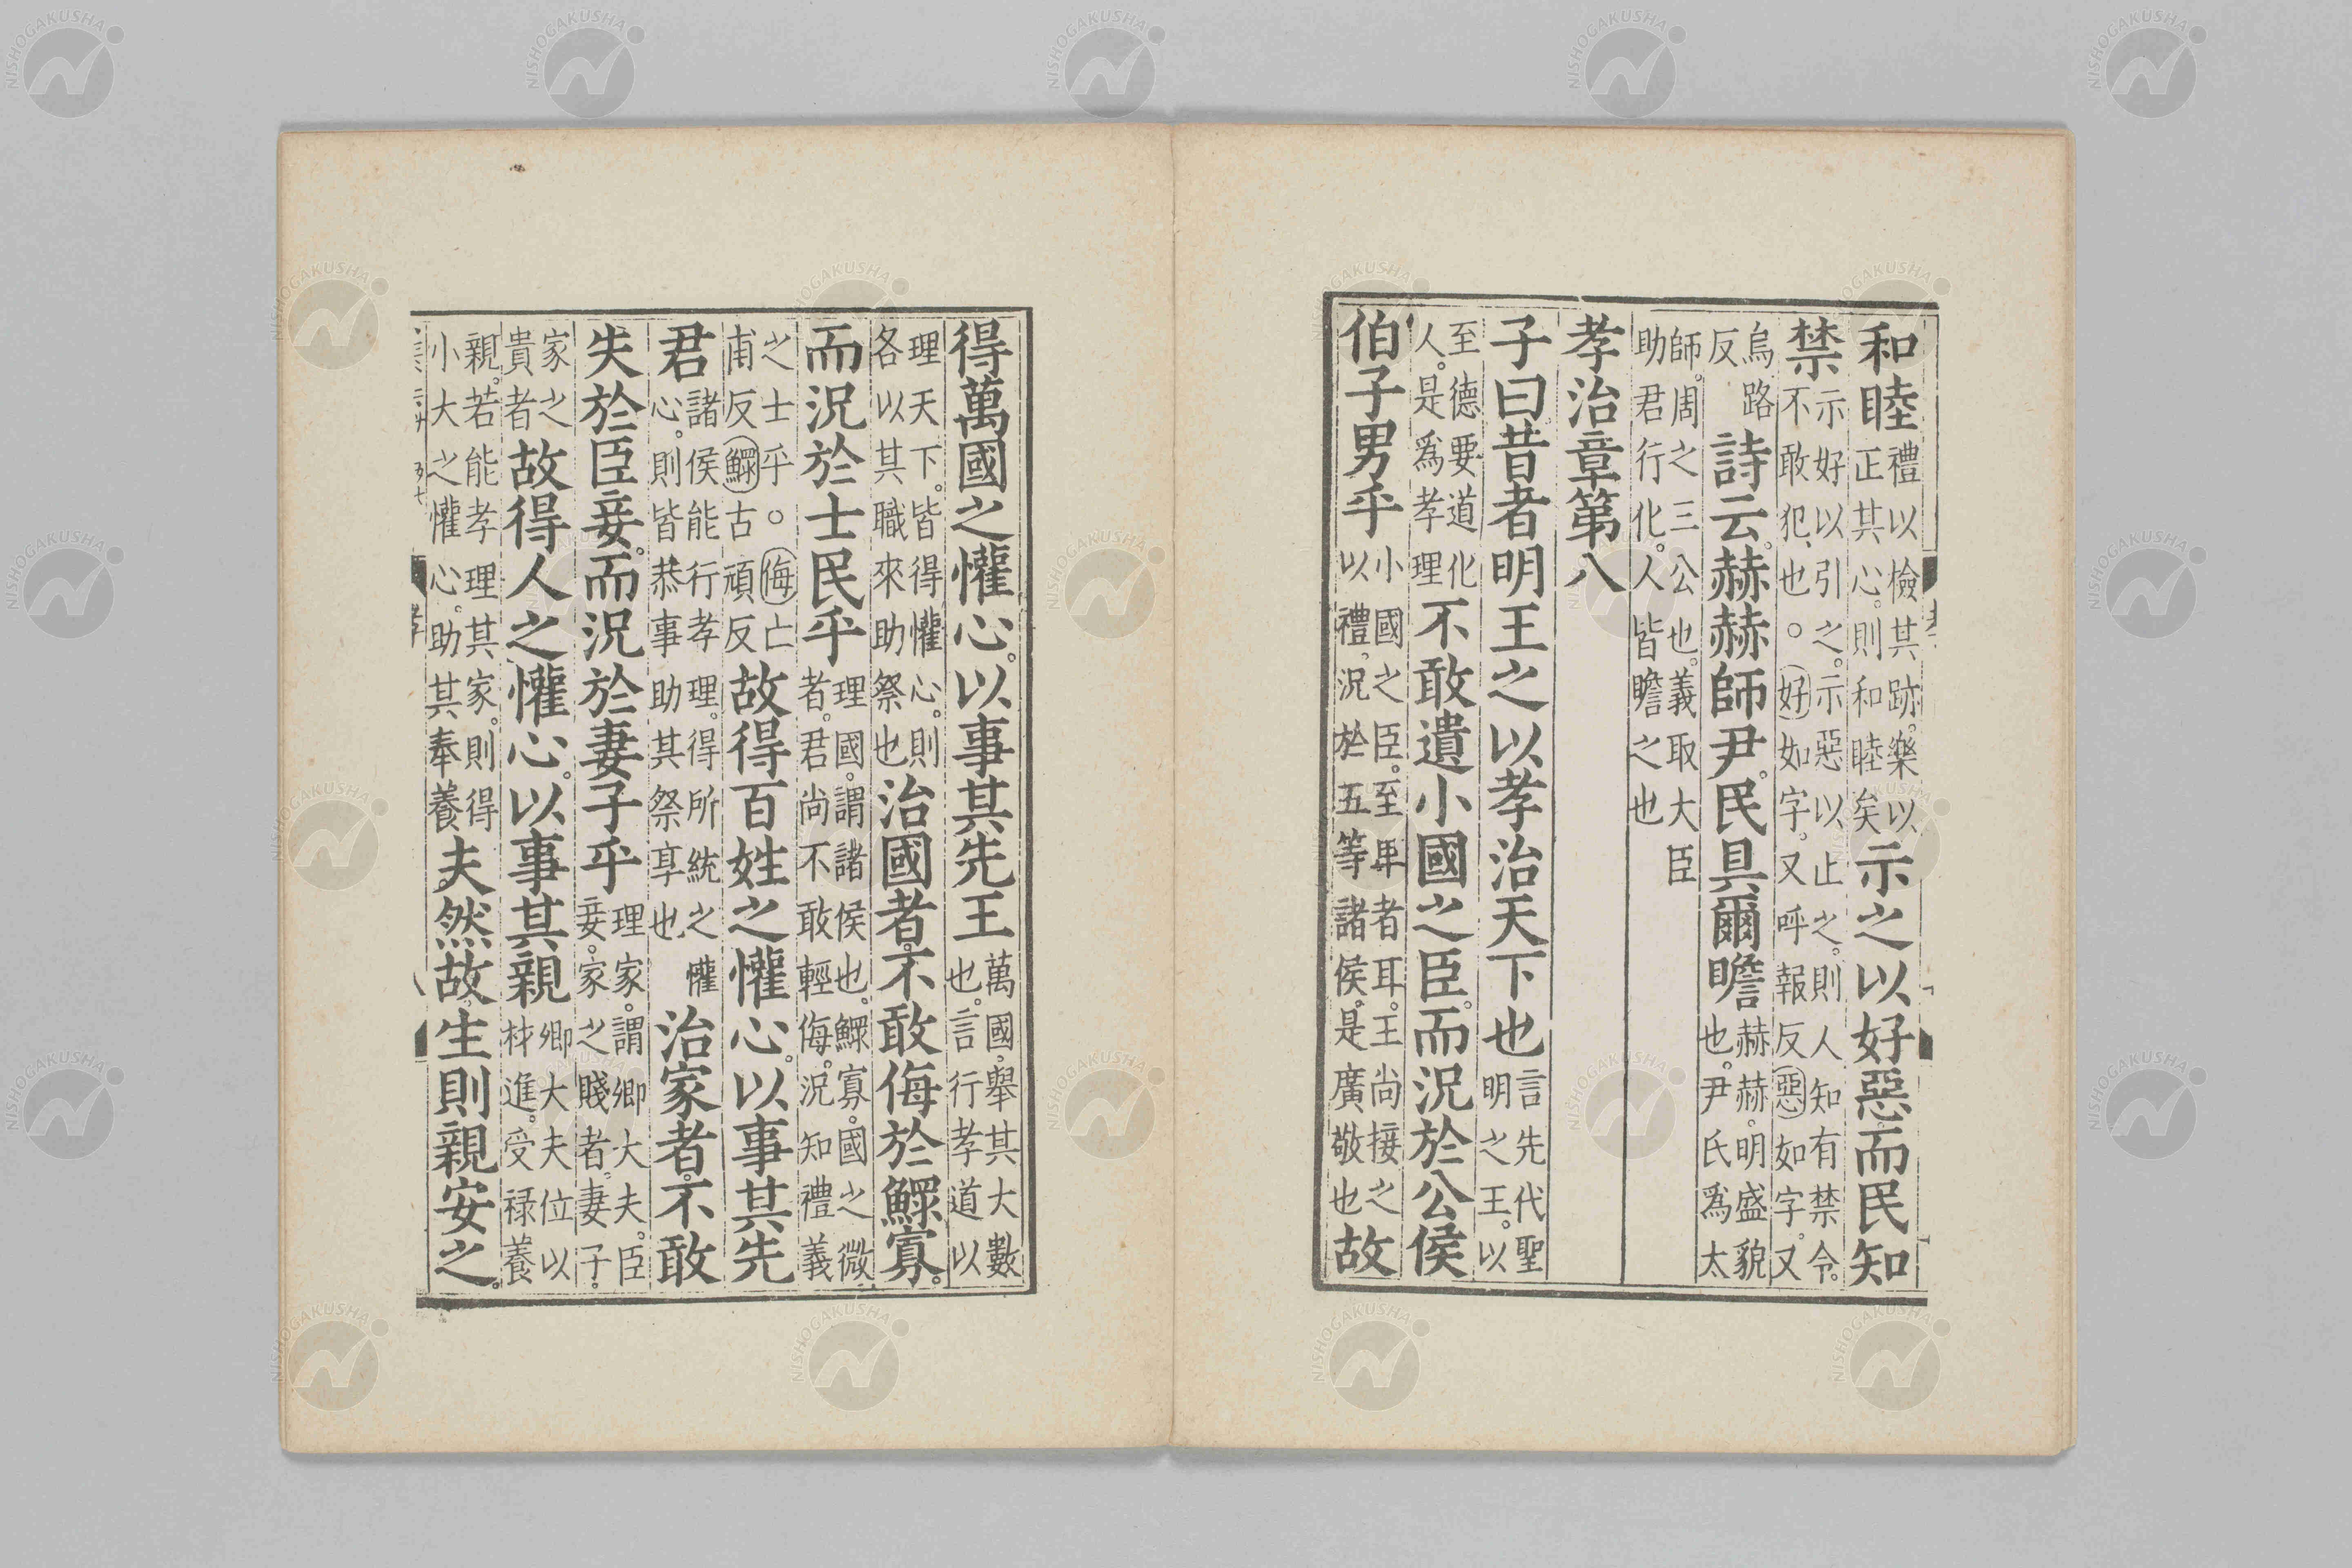 和睦禮以檢其跡。樂以正其心。則和睦矣示之以好惡而民知
禁示好以引之。示惡以止之。則人知有禁令。不敢犯也○好如字。又呼報反惡如字。又
烏路反詩云。赫赫師尹。民具爾瞻赫赫。明盛貌也。尹氏爲太
師。周之三公也。義取大臣助君行化。人皆瞻之也
孝治章第八
子曰昔者明王之以孝治天下也言先代聖明之王。以
至德要道化人。是爲孝理不敢遺小國之臣。而況於公侯
伯子男乎小國之臣。至卑者耳。王尚接之以禮。況於五等諸侯。是廣敬也故
得萬國之懽心。以事其先王萬國。舉其大數也。言行孝道以
理天下。皆得懽心。則各以其職來助祭也治國者。不敢侮於鰥寡。
而況於士民乎理國。謂諸侯也。鰥寡。國之微者。君尚不敢輕侮。況知禮義
之士乎○侮亡甫反鰥古頑反故得百姓之懽心。以事其先
君諸侯能行孝理。得所統之懽心。則皆恭事助其祭享也治家者。不敢
失於臣妾。而況於妻子乎理家。謂卿大夫。臣妾。家之賤者。妻子。
家之貴者故得人之懽心。以事其親卿大夫位以材進。受祿養
親。若能孝理其家。則得小大之懽心。助其奉養夫然。故生則親安之。
NISHOGAKUSHA